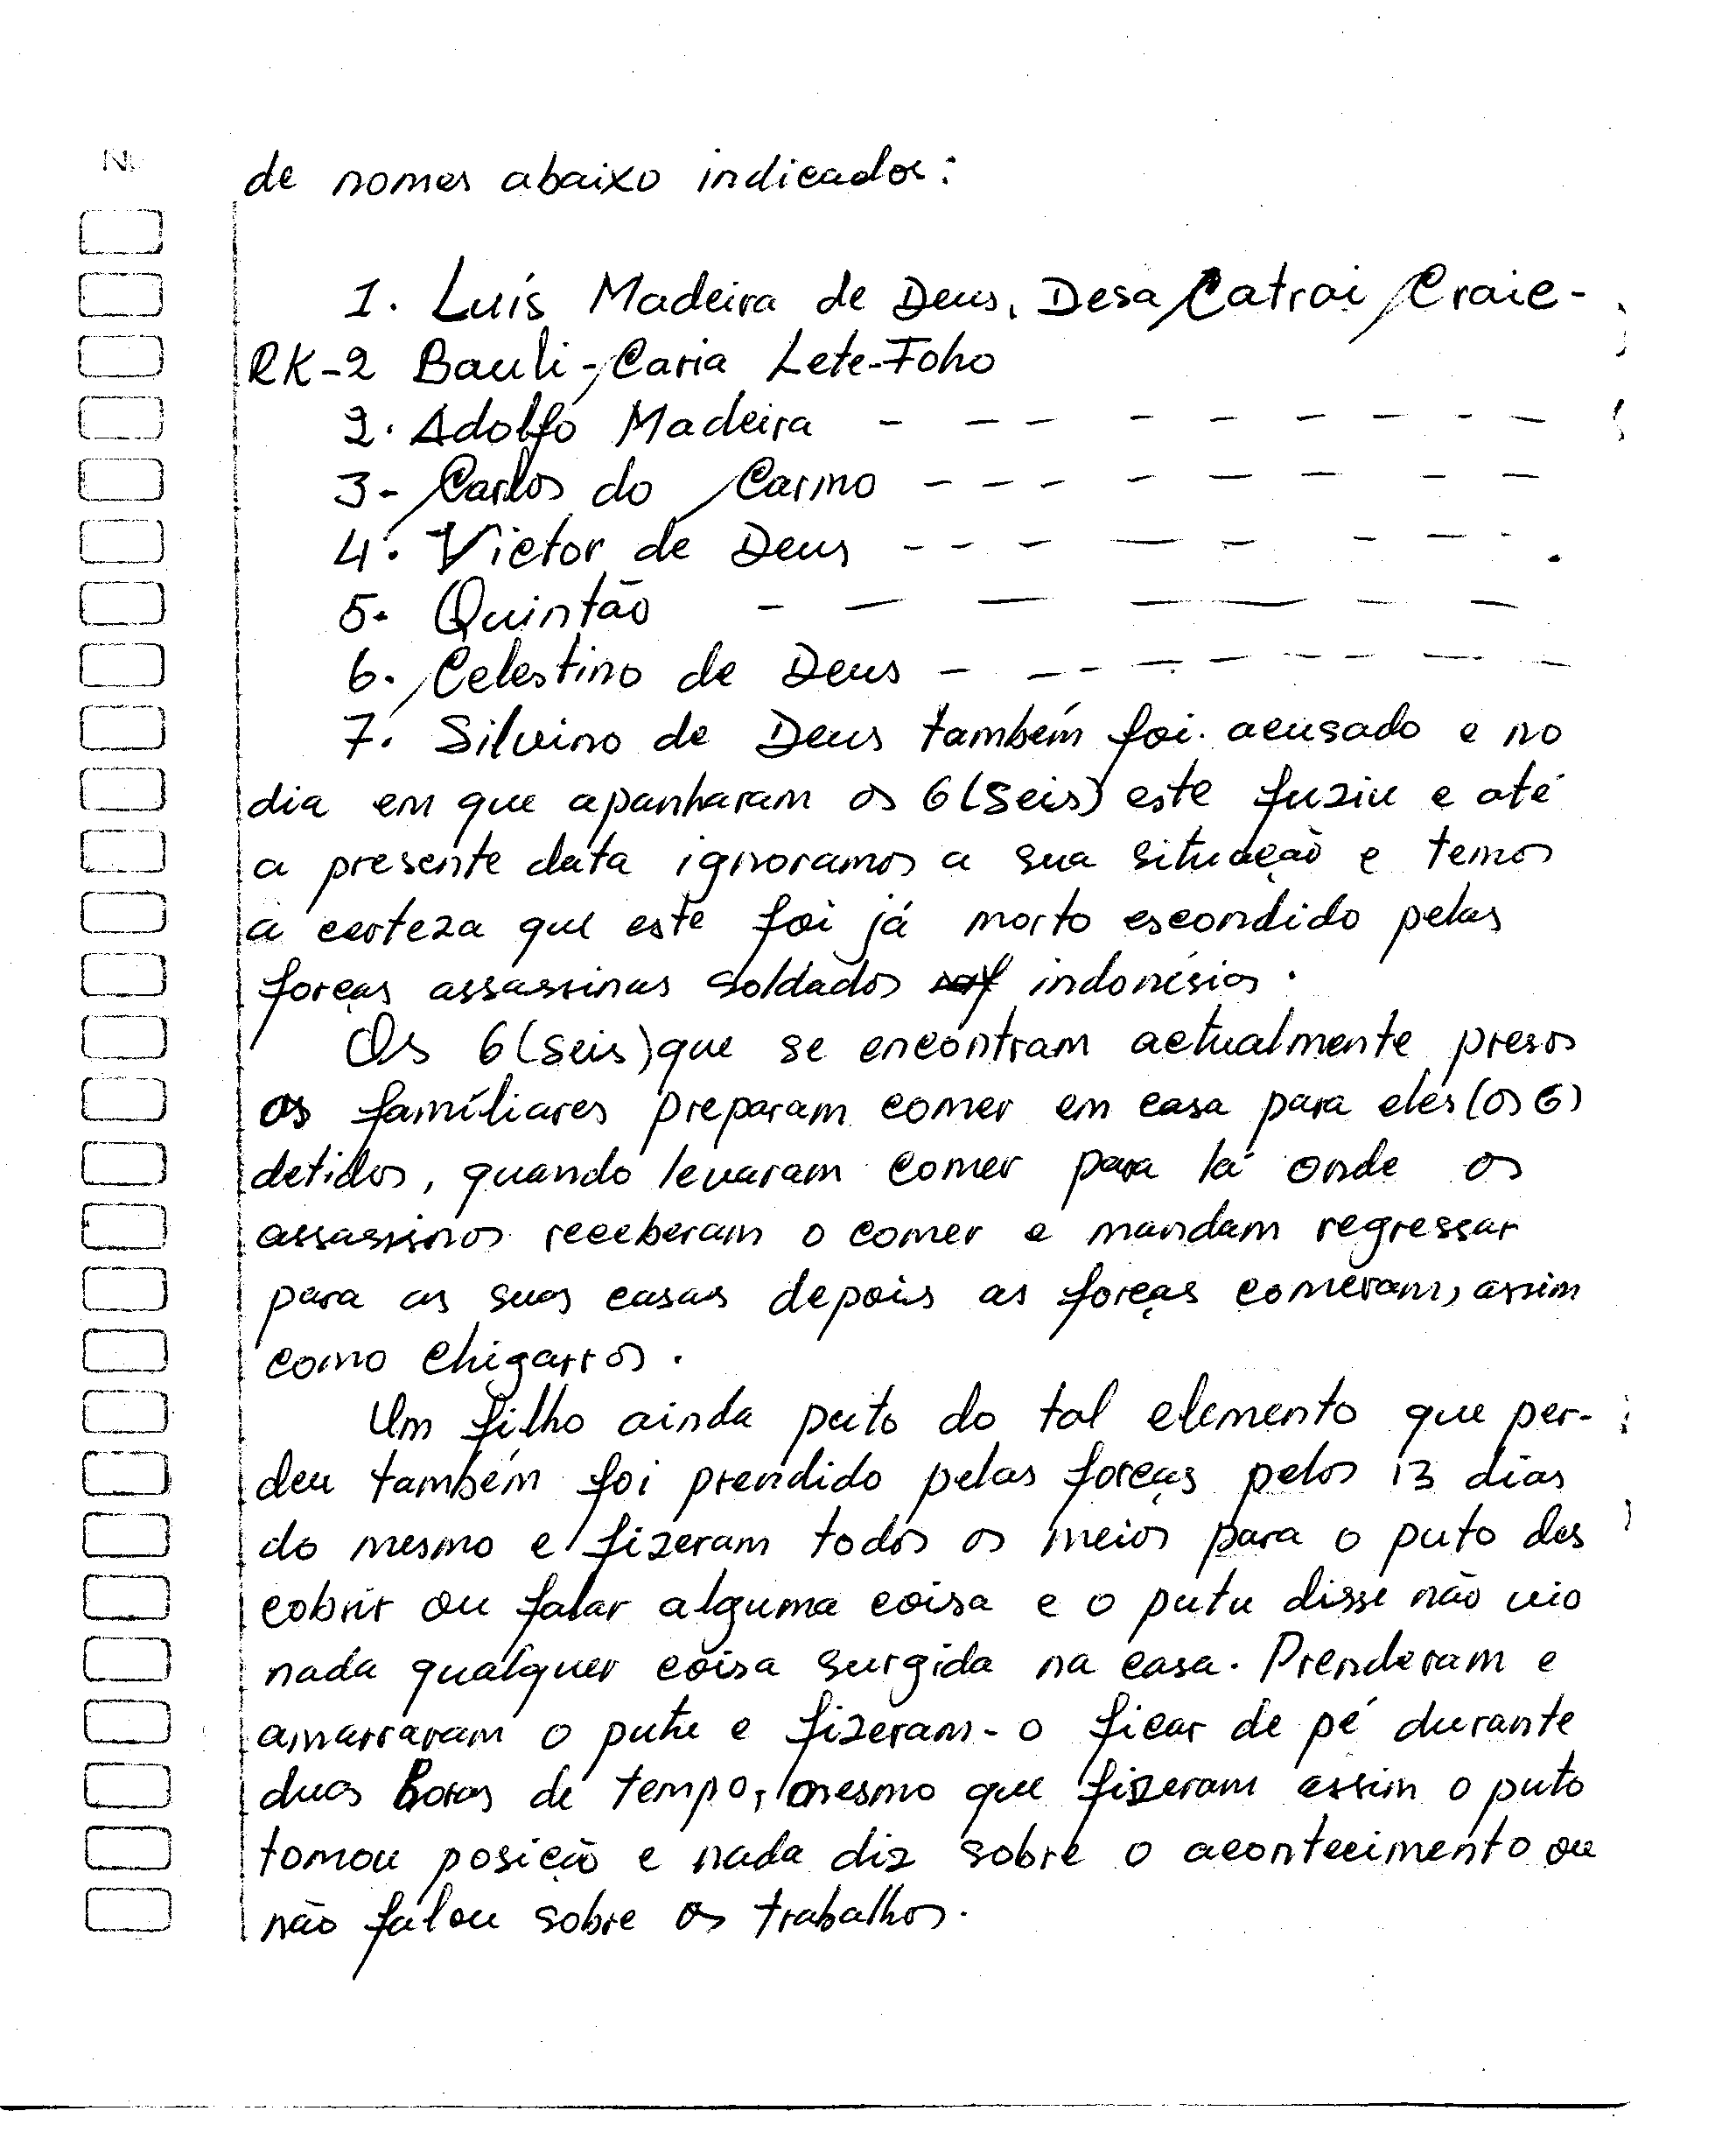 No
de nomes abaixo indicados:
1. Luís Madeira de Deus, Desa Catrai Craic-
RK-2 Bauli-Caria Lete-Foho
2. Adolfo Madeira - - - - - - - - -
3- Carlos do Carmo - - - - - - - -
4. Victor de Deus - - - - - - - - .
5. Quintão - - - - - - -
6. Celestino de Deus - - - - - - - - -
7. Silvino de Deus também foi acusado e no
dia em que apanharam os 6 (seis) este fuziu e até
a presente data ignoramos a sua situação e temos
a certeza que este foi já morto escondido pelas
forças assassinas soldados indonésios.
Os 6 (seis) que se encontram actualmente presos
os famíliares preparam comer em casa para eles (os 6)
detidos, quando levaram comer para lá onde os
assassinos receberam o comer e mandam regressar
para as suas casas depois as forças comeram, assim
como chigarros.
Um filho ainda puto do tal elemento que per-
deu também foi prendido pelas forças pelos 13 dias
do mesmo e fizeram todos os meios para o puto des
cobrir ou falar alguma coisa e o putu disse não vio
nada qualquer coisa surgida na casa. Prenderam e
amarraram o putu e fizeram-o ficar de pé durante
duas horas de tempo, mesmo que fizeram assim o puto
tomou posição e nada diz sobre o acontecimento ou
não falou sobre os trabalhos.